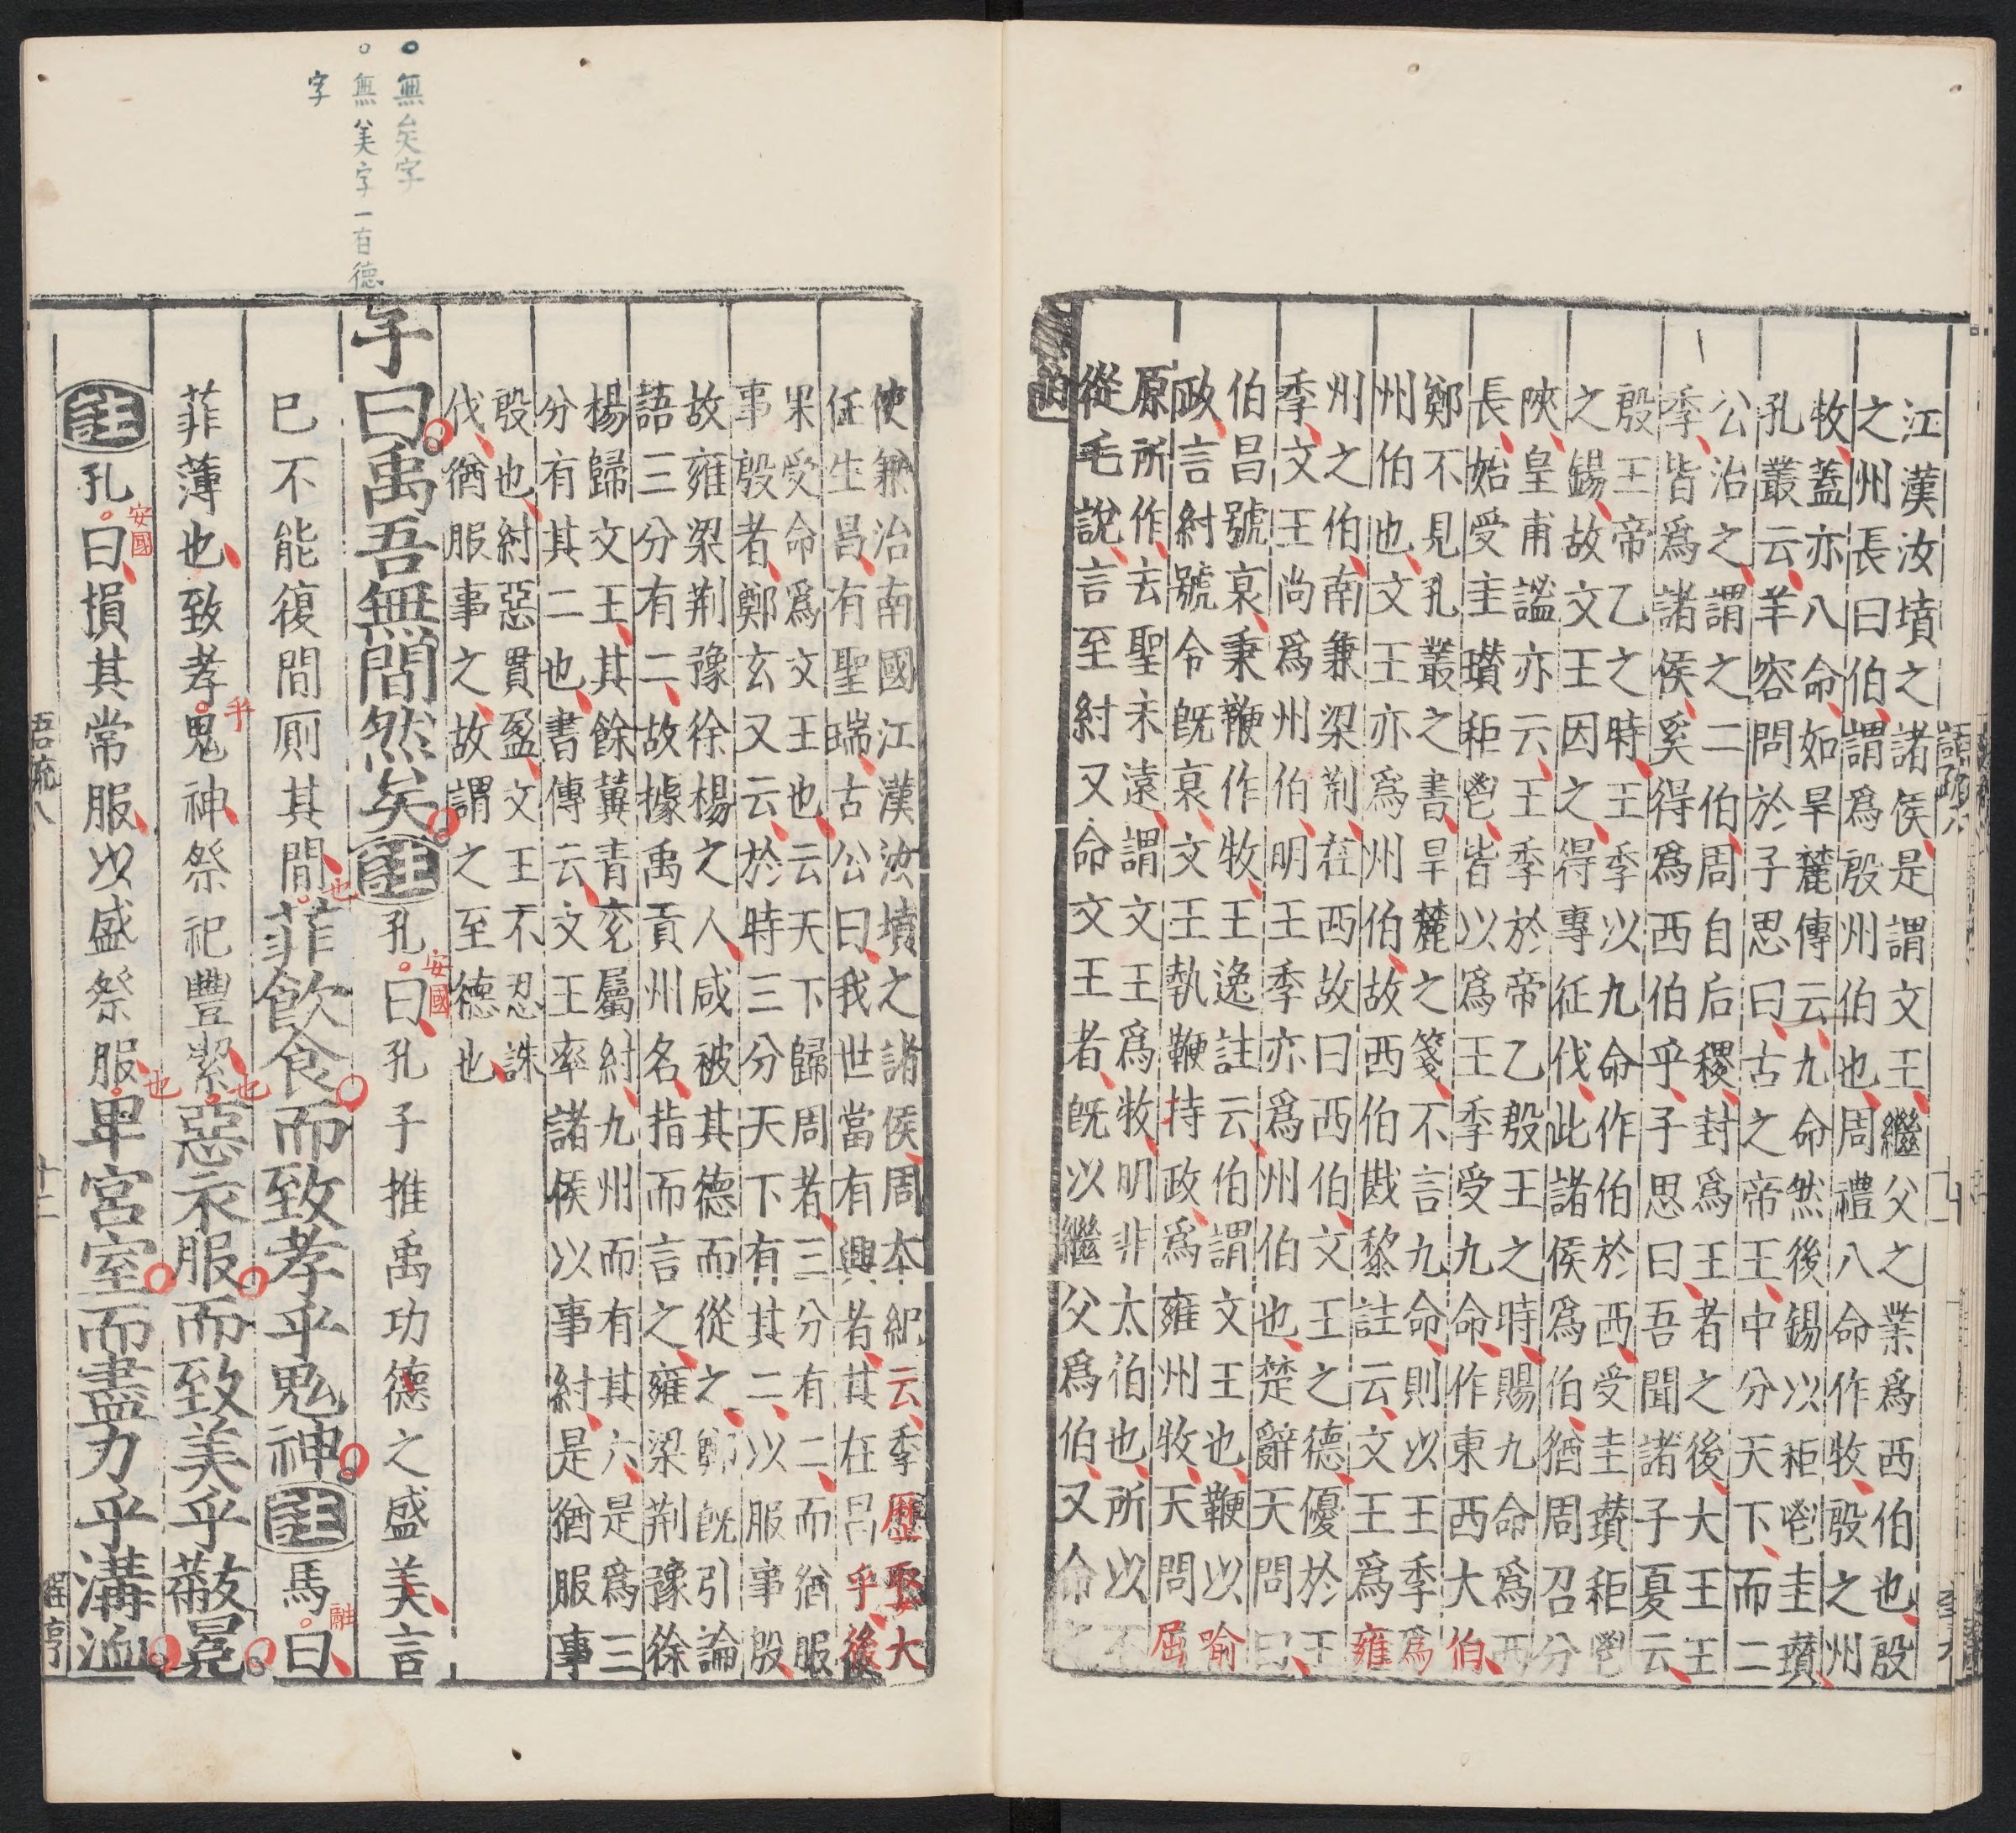 江漢汝墳之諸侯是謂文王繼父之業爲西伯也殷
之州長曰伯謂爲殷州伯也周禮八命作牧殷之州
牧蓋亦八命如旱麓傳云九命然後錫以秬鬯圭瓚
孔叢云羊容問於子思曰古之帝王中分天下而二
公治之謂之二伯周自后稷封爲王者之後大王王
季皆爲諸侯奚得爲西伯乎子思曰吾聞諸子夏云
殷王帝乙之時王季以九命作伯於西受圭瓚秬鬯
之錫故文王因之得專征伐此諸侯爲伯猶周召分
陝皇甫謐亦云王季於帝乙殷王之時賜九命爲西
長始受圭瓚秬鬯皆以爲王季受九命作東西大伯
鄭不見孔叢之書旱麓之箋不言九命則以王季爲
州伯也文王亦爲州伯故西伯戡黎註云文王爲雍
州之伯南兼梁荆在西故曰西伯文王之德優於王
季文王尚爲州伯明王季亦爲州伯也楚辭天問曰
伯昌號衰秉鞭作牧王逸註云伯謂文王也鞭以喻
政言紂號令既衰文王執鞭持政爲雍州牧天問屈
原所作去聖未遠謂文王爲牧明非太伯也所以不
從毛說言至紂又命文王者既以繼父爲伯又命
使兼治南國江漢汝墳之諸侯周本紀云季歷娶大
任生昌有聖瑞古公曰我世當有興者其在昌乎後
果受命爲文王也云天下歸周者三分有二而猶服
事殷者鄭玄又云於時三分天下有其二以服事殷
故雍梁荆豫徐楊之人咸被其德而從之鄭既引論
語三分有二故據禹貢州名指而言之雍梁荆豫徐
楊歸文王其餘冀青兖屬紂九州而有其六是爲三
分有其二也書傳云文王率諸侯以事紂是猶服事
殷也紂惡貫盈文王不忍誅
伐猶服事之故謂之至德也
無矣字
無美字一百德
字
子曰禹吾無間然矣註孔安國曰孔子推禹功德之盛美言
已不能復間厠其間也菲飲食而致孝乎鬼神註馬融曰
菲薄也致孝乎鬼神祭祀豐絜也惡衣服而致美乎黻冕
註孔安國曰損其常服以盛祭服也卑宮室而盡力乎溝洫
吾疏八
十二
程亨